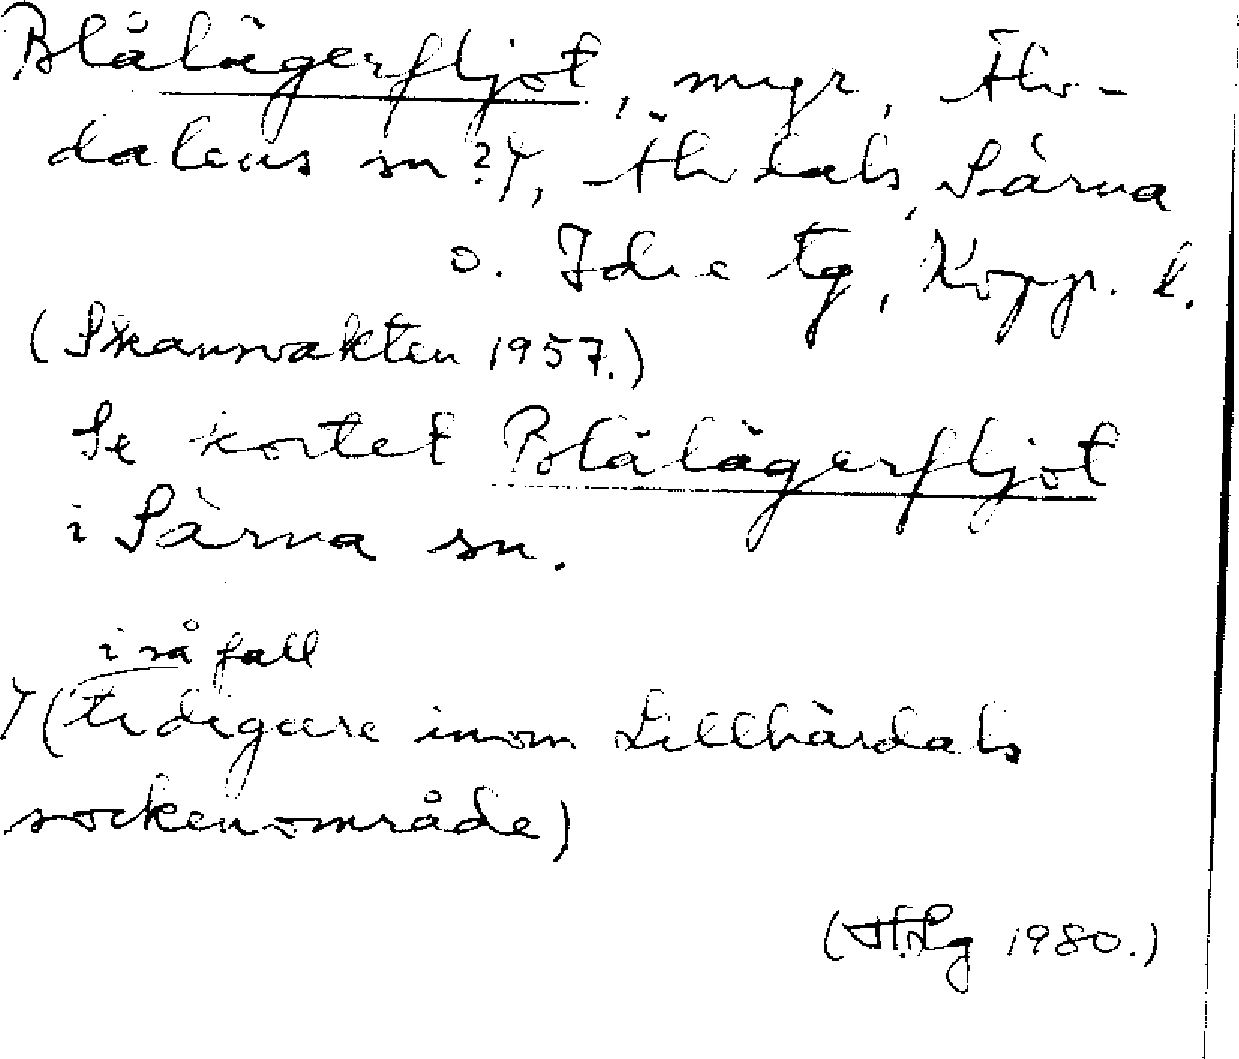 Blålägerfljot, myr, Älv-
dalens sn?⁊, Älvdals, Särna
o. Idre tg, Kopp. l.
(Skansvakten 1957.)
Se kortet Blålägerfljot
i Särna sn.
i så fall
⁊(tidigare inom Lillhärdals
sockenområde)
1980.)